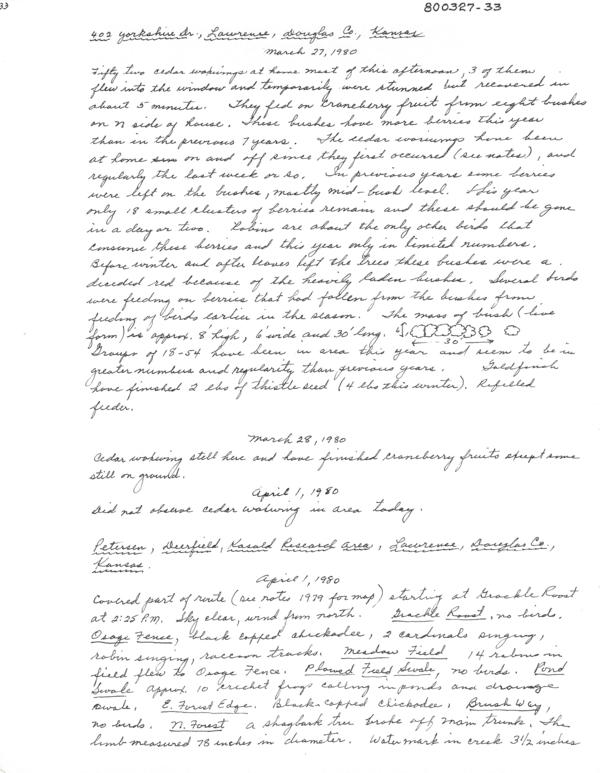 33
800327-33
402 Yorkshire Dr., Lawrence, Douglas Co., Kansas
March 27, 1980
Fifty two cedar waxwings at home most of this afternoon, 3 of them
flew into the window and temporarily were stunned but recovered in
about 5 minutes. They fed on craneberry fruit from eight bushes
on N side of house. These bushes have more berries this year
than in the previous 7 years. The cedar waxwings have been
at home on and off since they first occurred (see notes), and
regularly the last week or so. In previous years some berries
were left on the bushes, mostly mid-bush level. This year
only 18 small clusters of berries remain and these should be gone
in a day or two. Robins are about the only other birds that
consume these berries and this year only in limited numbers.
Before winter and after leaves left the trees these bushes were a
decided red because of the heavily laden bushes. Several birds
were feeding on berries that had fallen from the bushes from
feeding of birds earlier in the season. The mass of bush (live
form) is approx. 8' high, 6' wide and 30' long.
30'
Groups of 18-54 have been in area this year and seem to be in
greater numbers and regularity than previous years. Goldfinch
have finished 2 lbs of thistle seed (4 lbs this winter). Refilled
feeder.
March 28, 1980
Cedar waxwing still here and have finished craneberry fruits except some
still on ground.
April 1, 1980
Did not observe cedar waxwing in area today.
Petersen, Deerfield, Kasold Research Area, Lawrence, Douglas Co.,
Kansas.
April 1, 1980
Covered part of route (see notes 1979 for map) starting at Grackle Roost
at 2:25 P.M. Sky clear, wind from north. Grackle Roost, no birds.
Osage Fence, black capped chickadee, 2 cardinals singing,
robin singing, raccoon tracks. Meadow Field 14 robins in
field flew to Osage Fence. Plowed Field Swale, no birds. Pond
Swale approx. 10 cricket frogs calling in ponds and drainage
swale. E. Forest Edge. Black-capped Chickadee. Brush Way,
no birds. N. Forest a shagbark tree broke off main trunk. The
limb measured 78 inches in diameter. Watermark in creek 3 1/2 inches